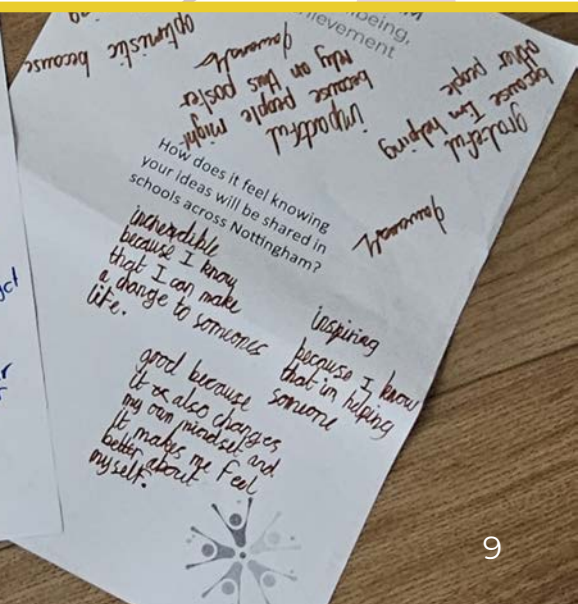 being,
ievement
optimistic because
impactful
because people might
rely on this poster
grateful
because I'm helping
other people
How does it feel knowing
your ideas will be shared in
schools across Nottingham?
increadible
because I know
that I can make
a change to someones
life.
inspiring
because I know
that im helping
someone
good because
it also changes
my own mindset and
it makes me feel
better about
myself.
9